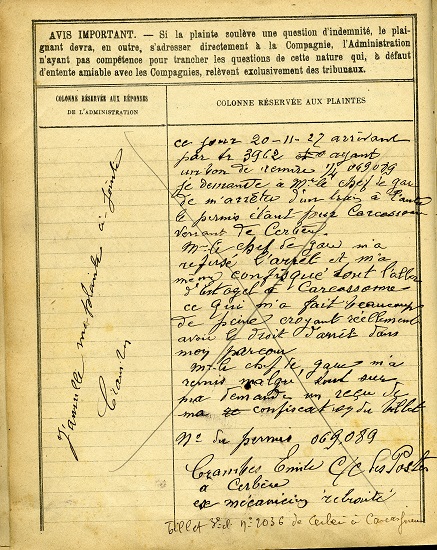 AVIS IMPORTANT. — Si la plainte soulève une question d'indemnité, le plai-
gnant devra, en outre, s'adresser directement à la Compagnie, l'Administration
n'ayant pas compétence pour trancher les questions de cette nature qui, à défaut
d'entente amiable avec les Compagnies, relèvent exclusivement des tribunaux.
COLONNE RÉSERVÉE AUX RÉPONSES
DE L'ADMINISTRATION
J'annulle ma plainte
COLONNE RÉSERVÉE AUX PLAINTES
ce jour 20-11-27 arrivant
par tr 3962 ayant
un bon de remise 069089
Je demande à Mr le chef de gare
de m'arrêter d'un train à l'autre
le permis étant pour Carcassonne
venant de Cerbère.
Mr le chef de gare m'a
refusé l'arrêt et m'a
même confisqué
d'Estagel à Carcassonne
ce qui m'a fait beaucoup
de peine croyant réellement
avoir le droit d'arrêt dans
mon parcour
Mr le chef de gare m'a
remis malgré tout sur
ma demande un reçu de
ma confiscation du billet
No du permis 069089
Crambes Emile
a Cerbère
ex mécanicien retraité
Billet No 2036 de Cerbère à